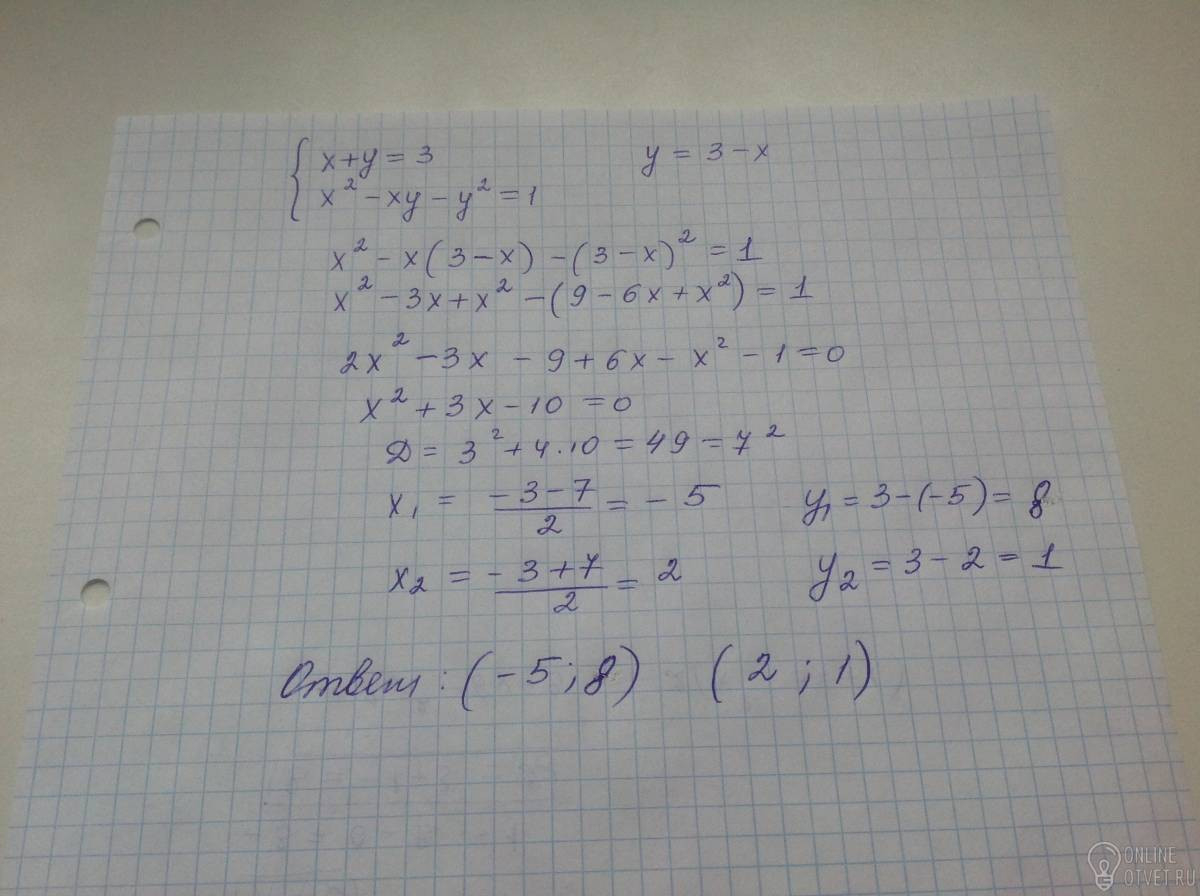 { x+y = 3 y = 3 – x
x² – xy – y² = 1
x² – x(3 – x) – (3 – x)² = 1
x² – 3x + x² – (9 – 6x + x²) = 1
2x² – 3x – 9 + 6x – x² – 1 = 0
x² + 3x – 10 = 0
Д = 3² + 4·10 = 49 = 7²
x₁ = (–3–7)/2 = –5 y₁ = 3–(–5) = 8
x₂ = (–3+7)/2 = 2 y₂ = 3 – 2 = 1
Ответ: (–5; 8) (2; 1)
ONLINE
OTVET.RU